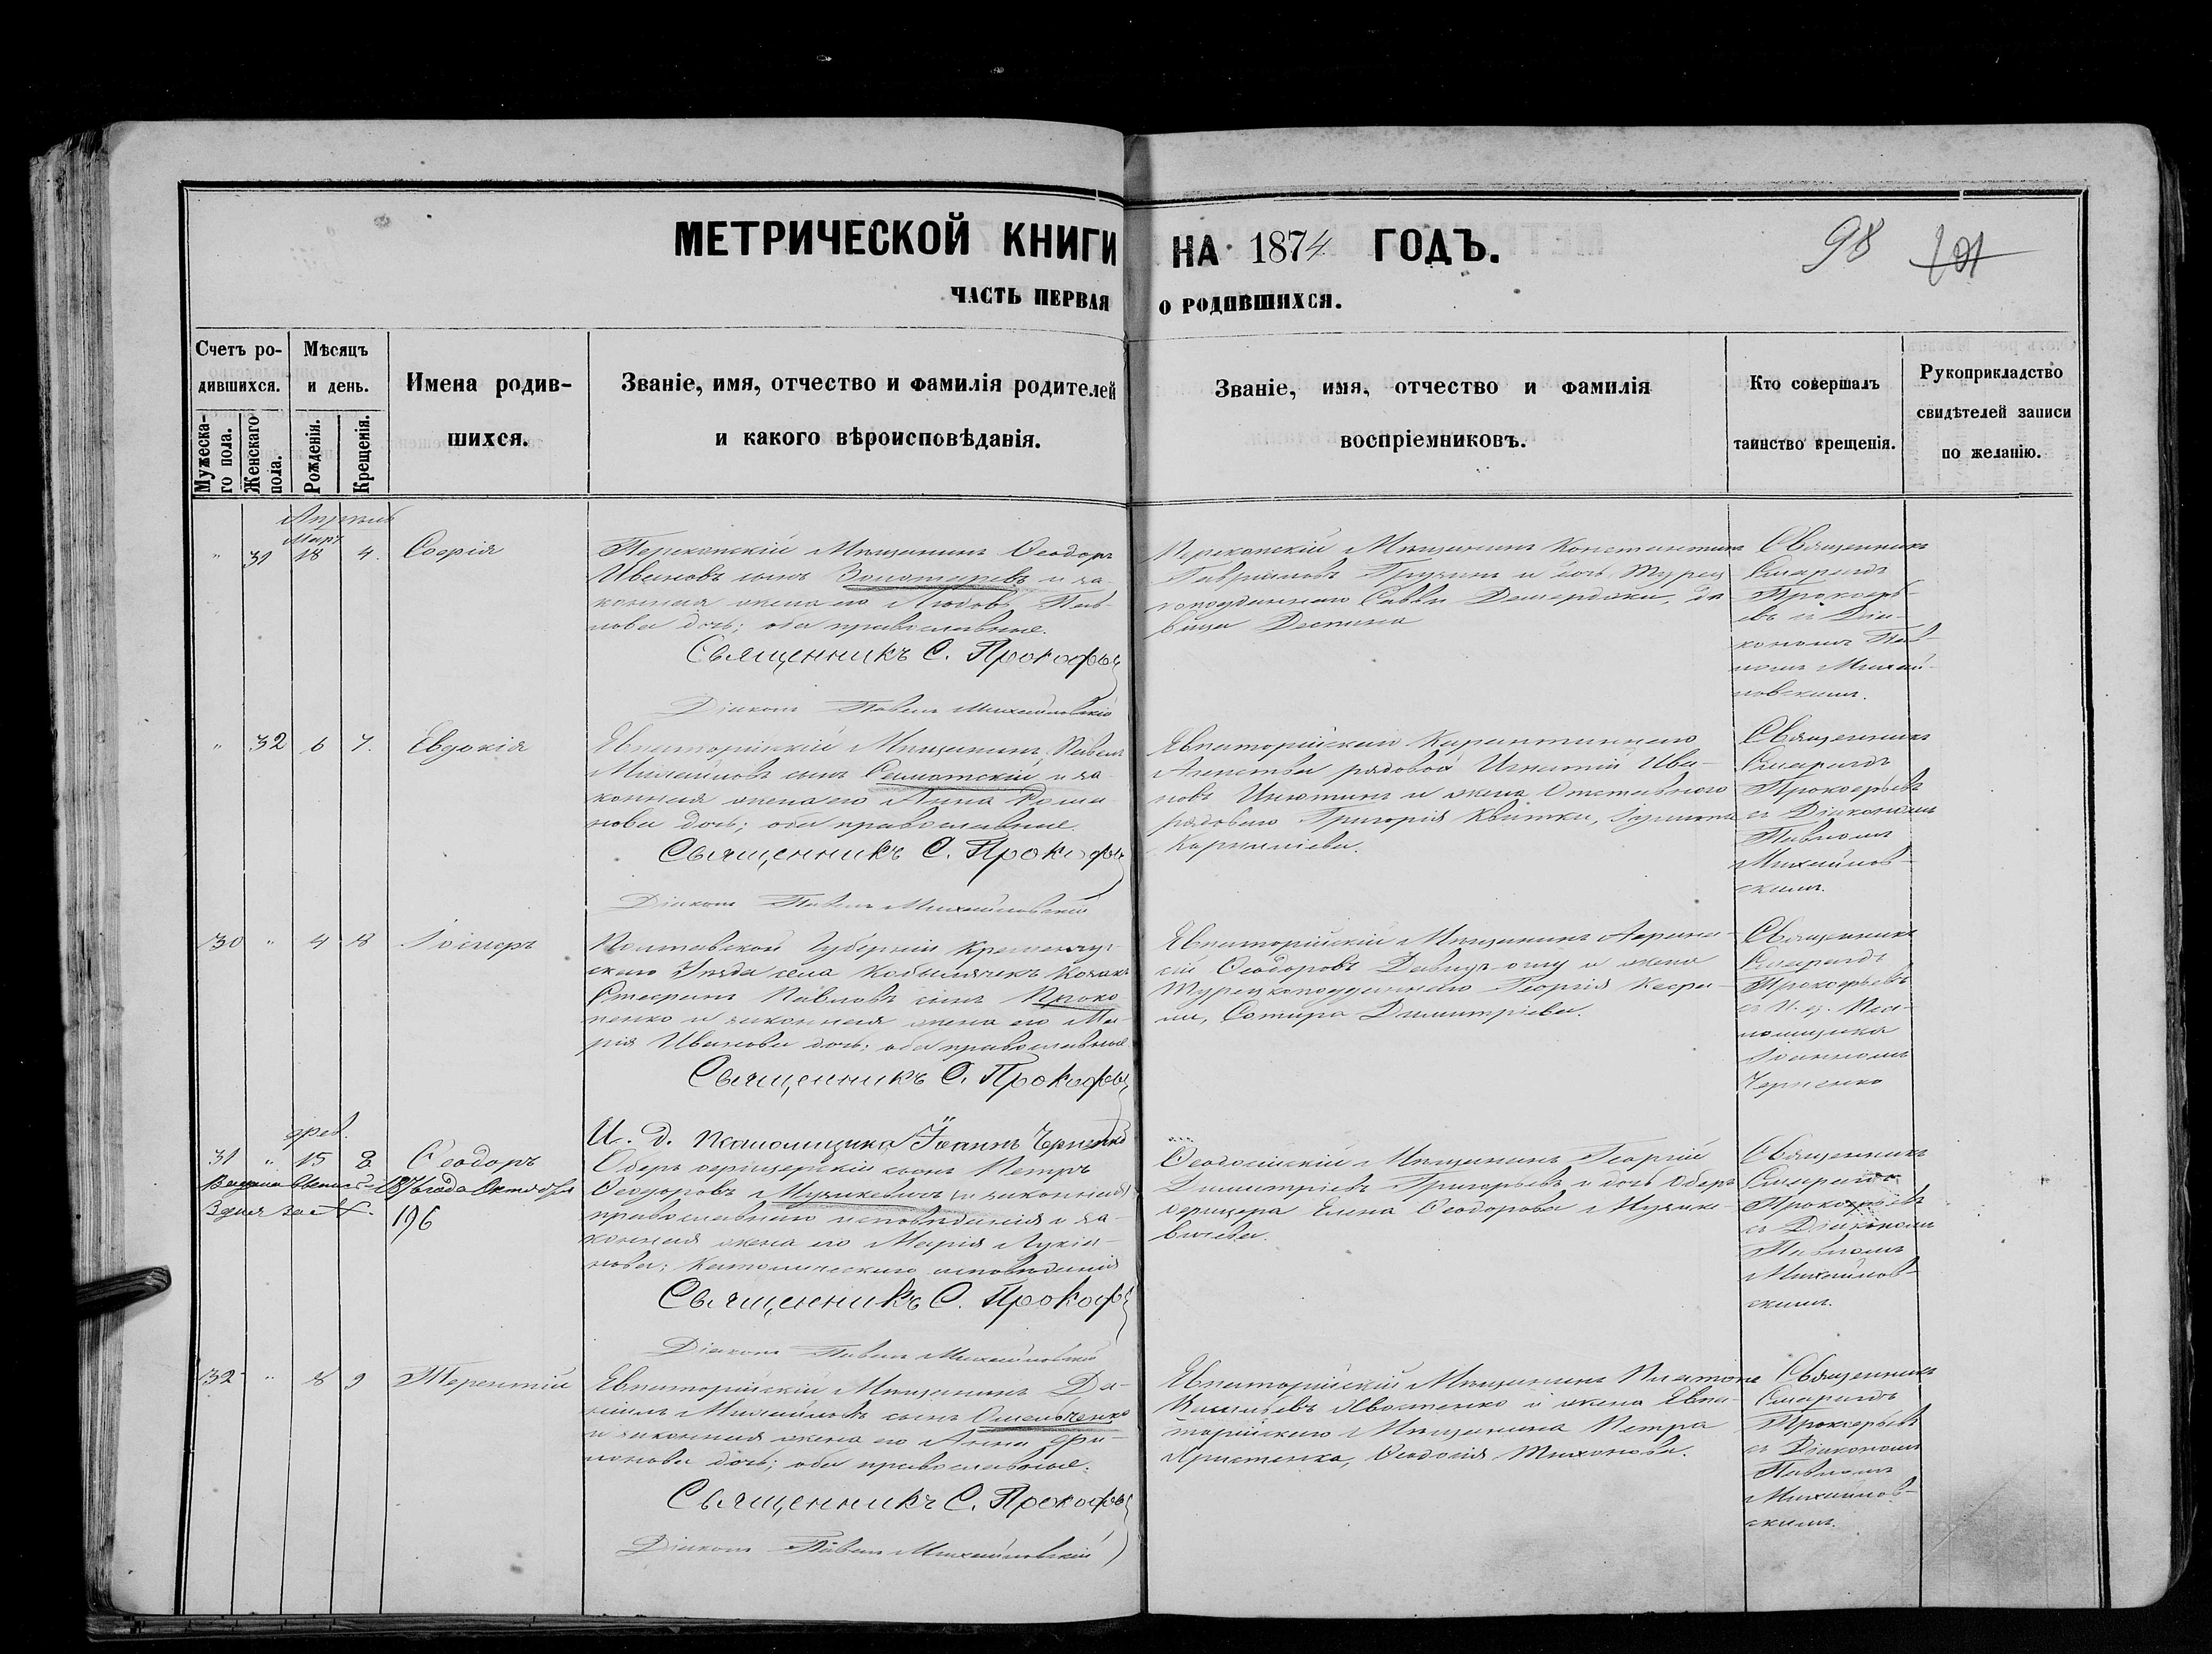 МЕТРИЧЕСКОЙ КНИГИ НА 1874 ГОДЪ.
98 101
ЧАСТЬ ПЕРВАЯ О РОДИВШИХСЯ.
Счетъ ро-
дившихся.
Мужеска-
го пола.
Женскаго
пола.
Мѣсяцъ
и день.
Рожденія.
Крещенія.
Имена родив-
шихся.
Званіе, имя, отчество и фамилія родителей
и какого вѣроисповѣданія.
Званіе, имя, отчество и фамилія
воспріемниковъ.
Кто совершалъ
таинство крещенія.
Рукоприкладство
свидѣтелей записи
по желанію.
Апрѣль
Март.
" 31 18 4. Софія
Перекопскій Мѣщанинъ Ѳеодоръ
Ивановъ сынъ и за-
конная жена его Любовь Пав-
лова дочь; оба православные.
Священникъ С. Прокофьев
Діаконъ Павелъ Михайловскій
Перекопскій Мѣщанинъ Константинъ
Гавриловъ и дочь Турец
коподданнаго Саввы дѣ
вица Деспина
Священникъ
Смарагдъ
Прокофь-
евъ съ Діа-
кономъ Пав-
ломъ Михай-
ловскимъ.
" 32 6 7. Евдокія
Евпаторійскій Мѣщанинъ Павелъ
Михайловъ сынъ и за-
конная жена его Анна Рома-
нова дочь; оба православные.
Священникъ С. Прокофьев
Діаконъ Павелъ Михайловскій
Евпаторійскаго Карантиннаго
Агентства рядовой Игнатій Ива-
новъ и жена Отставнаго
рядоваго Григорія Квитки,
Корниліева.
Священникъ
Смарагдъ
Прокофьевъ
съ Діакономъ
Павломъ
Михайлов-
скимъ.
30 " 4 8 Іосифъ
Полтавской Губерніи Кременчуг-
скаго Уѣзда села Козакъ
Стефанъ Павловъ сынъ Проко
пенко и законная жена его Ма-
рія Иванова дочь; оба православные
Священникъ С. Прокофьев
И. д. Псаломщика Іоаннъ Черненко
Евпаторійскій Мѣщанинъ
Ѳеодоровъ и жена
Турецкоподданнаго Георгія
Сотира Димитріева.
Священникъ
Смарагдъ
Прокофьевъ
съ И. д. Пса-
ломщика
Іоанномъ
Черненко
фев.
31 " 15 8 Ѳеодоръ
1876 года Октября
3 дня за №. 196
Оберъ офицерскій сынъ Петръ
Ѳеодоровъ Мушкевичъ (и законная)
православнаго исповѣданія и за-
конная жена его Марія Лукіа-
нова; Католическаго исповѣданія
Священникъ С. Прокофьев
Діаконъ Павелъ Михайловскій
Ѳеодосійскій Мѣщанинъ Георгій
Димитріевъ Григорьевъ и дочь Оберъ
офицера Елена Ѳеодорова Мушке-
вичева.
Священникъ
Смарагдъ
Прокофьевъ
съ Діакономъ
Павломъ
Михайлов-
скимъ.
32 " 8 9 Терентій
Евпаторійскій Мѣщанинъ Да-
ніилъ Михайловъ сынъ Омельченко
и законная жена его Анна Фи-
липова дочь; оба православные.
Священникъ С. Прокофьев
Діаконъ Павелъ Михайловскій
Евпаторійскій Мѣщанинъ Платонъ
Васильевъ и жена Евпа-
торійскаго Мѣщанина Петра
Ѳеодосія Тихонова.
Священникъ
Смарагдъ
Прокофьевъ
съ Діакономъ
Павломъ
Михайлов-
скимъ.